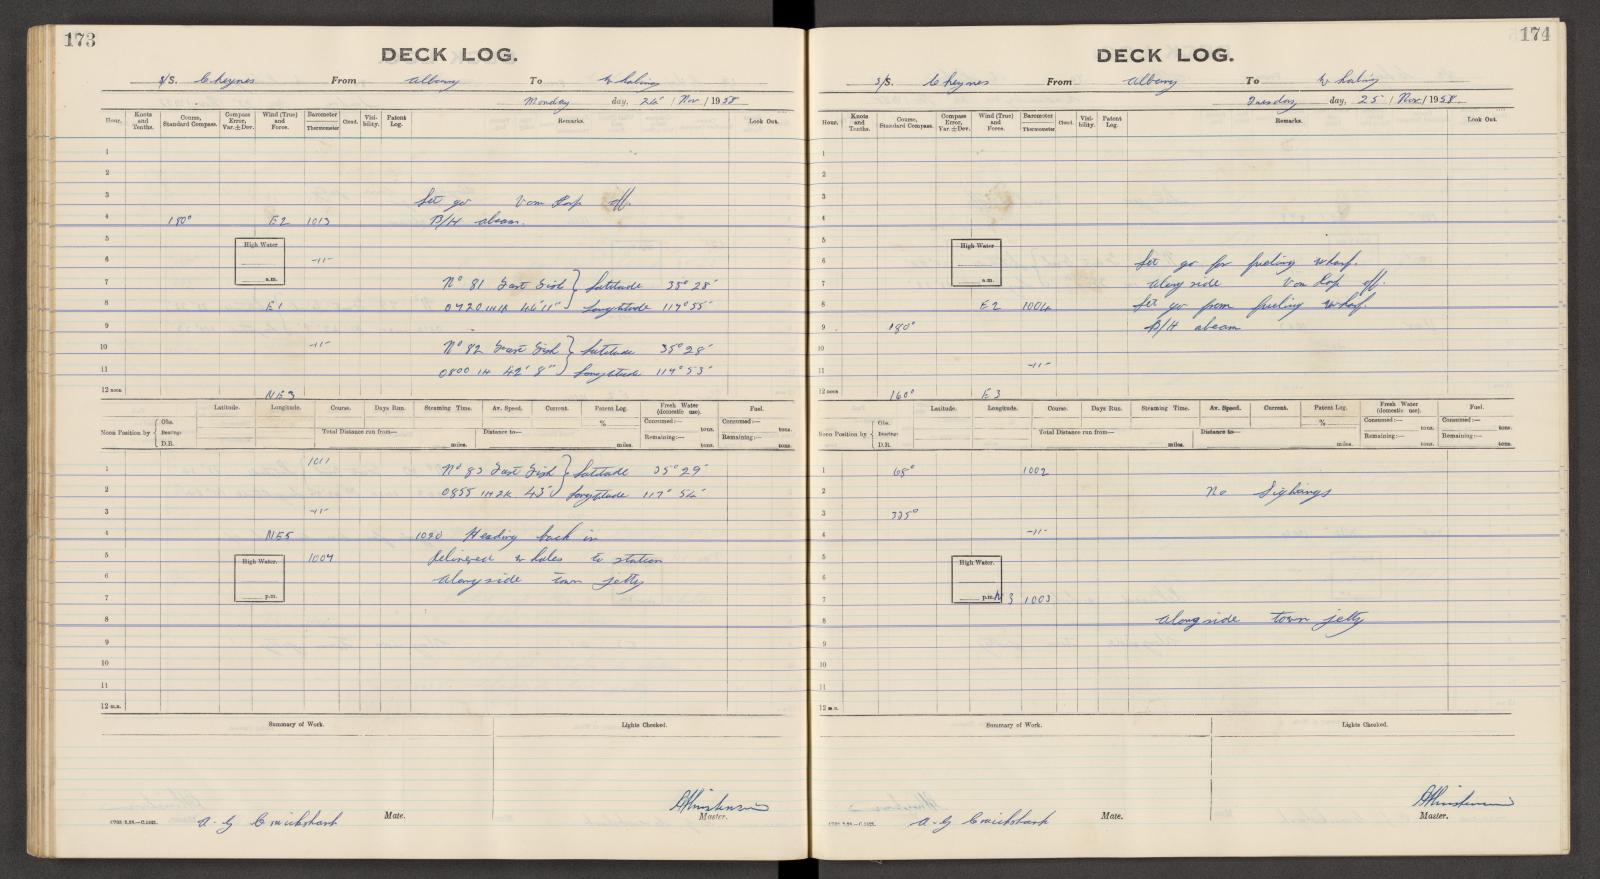 173
DECK LOG.
S/S. Cheynes From Albany To Whaling
Monday day, 24 / Nov / 1958
Hour. Knots and Tenths. Course, Standard Compass. Compass Error, Var. ± Dev. Wind (True) and Force. Barometer Thermometer Cloud. Visibility. Patent Log. Remarks. Look Out.
1
2
3 Let go Vom Loop off.
4 180° E2 1013 B/H abeam.
5 High Water
6 -11-
a.m.
7 No 81 Fast Fish } Latitude 35° 28'
8 E1 0720 1H1K 46'11" } Longitude 117° 55'
9
10 -11- No 82 Fast Fish } Latitude 35° 28'
11 0800 1H 42' 8" } Longitude 117° 53'
12 noon NE3
Latitude. Longitude. Course. Days Run. Steaming Time. Av. Speed. Current. Patent Log. Fresh Water (domestic use). Fuel.
Noon Position by { Obs. Bearing: D.R.
% Consumed:— tons. Consumed:— tons.
Total Distance run from— miles. Distance to— miles. Remaining:— tons. Remaining:— tons.
1 1011 No 83 Fast Fish } Latitude 35° 29'
2 0855 1H2K 43' } Longitude 117° 54'
3 -11-
4 NE5 1020 Heading back in
5 High Water. 1004 Delivered whales to station
6 Alongside town jetty
7 p.m.
8
9
10
11
12 m.n.
Summary of Work. Lights Checked.
A. G Cruickshank Mate. Master.
174
DECK LOG.
S/S. Cheynes From Albany To Whaling
Tuesday day, 25 / Nov / 1958.
Hour. Knots and Tenths. Course, Standard Compass. Compass Error, Var. ± Dev. Wind (True) and Force. Barometer Thermometer Cloud. Visibility. Patent Log. Remarks. Look Out.
1
2
3
4
5 High Water
6 Let go for fueling wharf.
7 a.m. Along side Vom Loop off.
8 E2 1004 Let go from fueling wharf.
9 180° B/H abeam
10
11 -11-
12 noon 160° E3
Latitude. Longitude. Course. Days Run. Steaming Time. Av. Speed. Current. Patent Log. Fresh Water (domestic use). Fuel.
Noon Position by { Obs. Bearing: D.R.
% Consumed:— tons. Consumed:— tons.
Total Distance run from— miles. Distance to— miles. Remaining:— tons. Remaining:— tons.
1 68° 1002
2 No Sighings
3 335°
4 -11-
5 High Water.
6
7 p.m. N3 1003
8 Alongside town jetty
9
10
11
12 m.n.
Summary of Work. Lights Checked.
A. G Cruickshank Mate. Master.